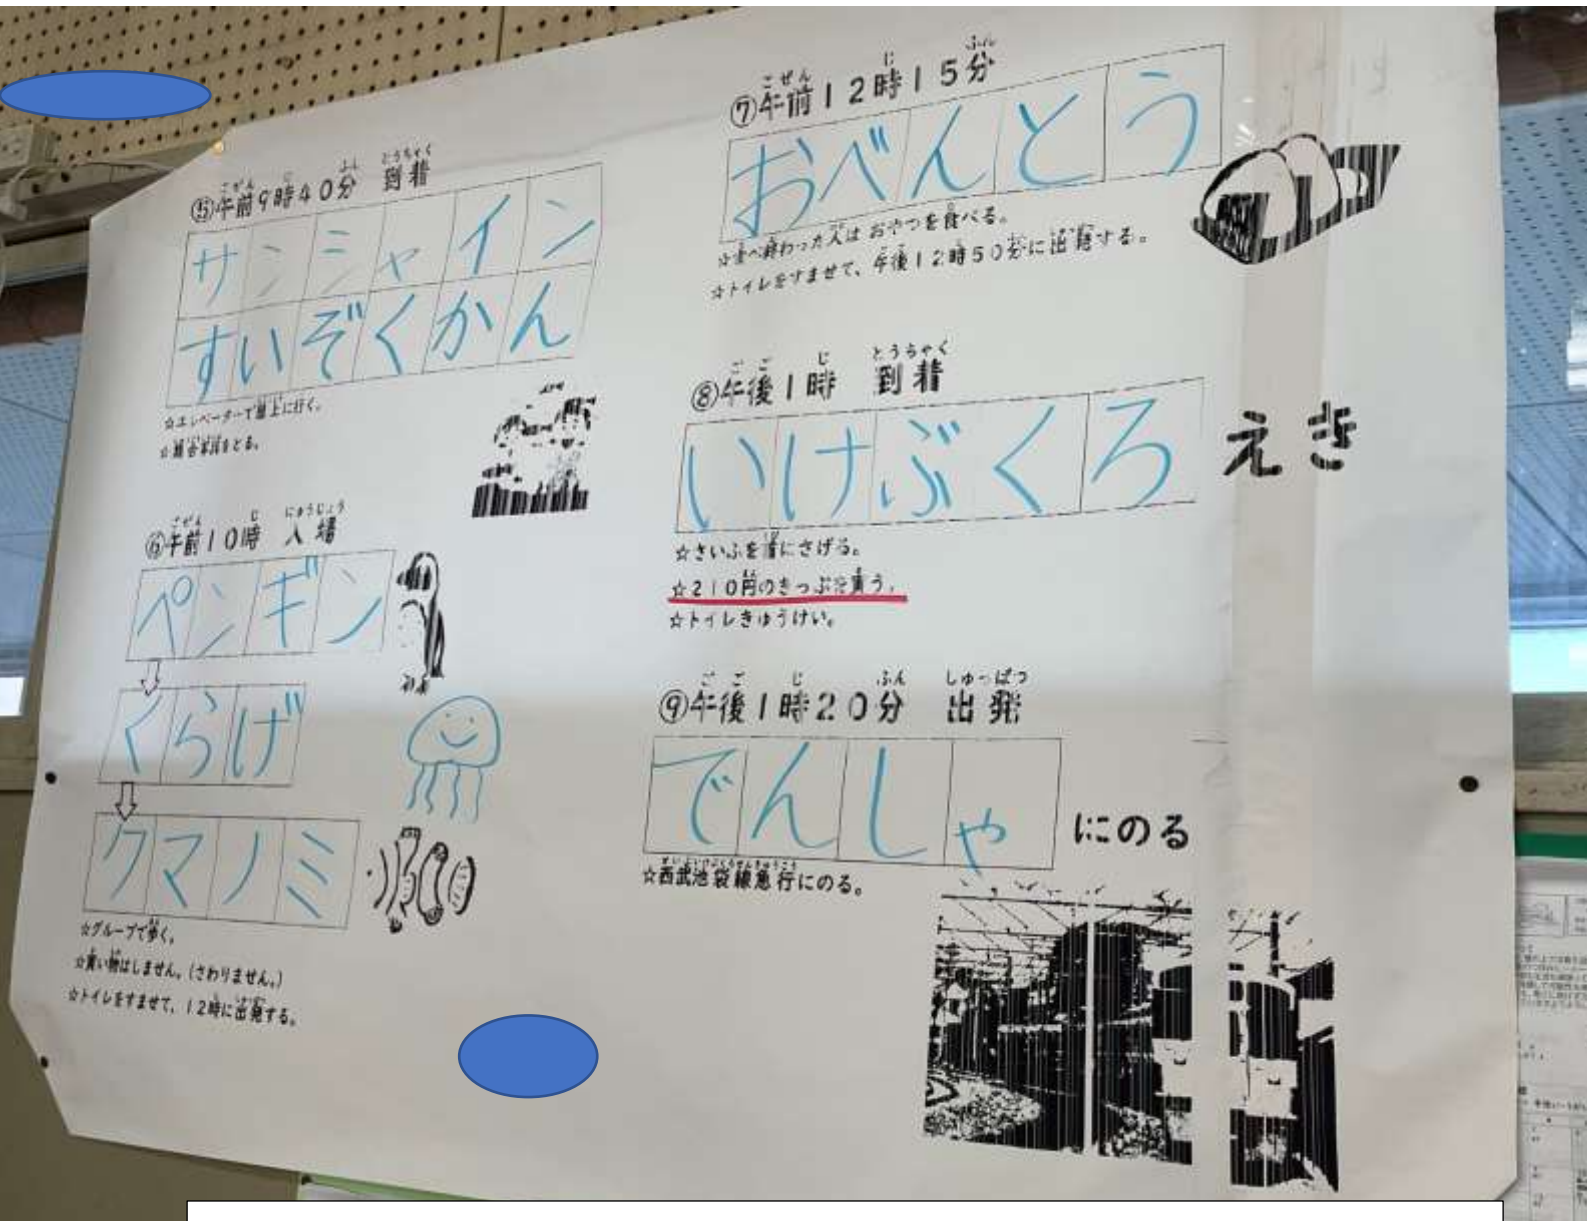 ⑤午前9時40分 到着
サンシャイン
すいぞくかん
☆エレベーターで屋上に行く。
☆集合写真をとる。
⑥午前10時 入場
ペンギン
くらげ
クマノミ
☆グループで歩く。
☆買い物はしません。(さわりません。)
☆トイレをすませて、12時に出発する。
⑦午前12時15分
おべんとう
☆食べ終わった人はおやつを食べる。
☆トイレをすませて、午後12時50分に出発する。
⑧午後1時 到着
いけぶくろ えき
☆さいふを首にさげる。
☆210円のきっぷを買う。
☆トイレきゅうけい。
⑨午後1時20分 出発
でんしゃ にのる
☆西武池袋線急行にのる。